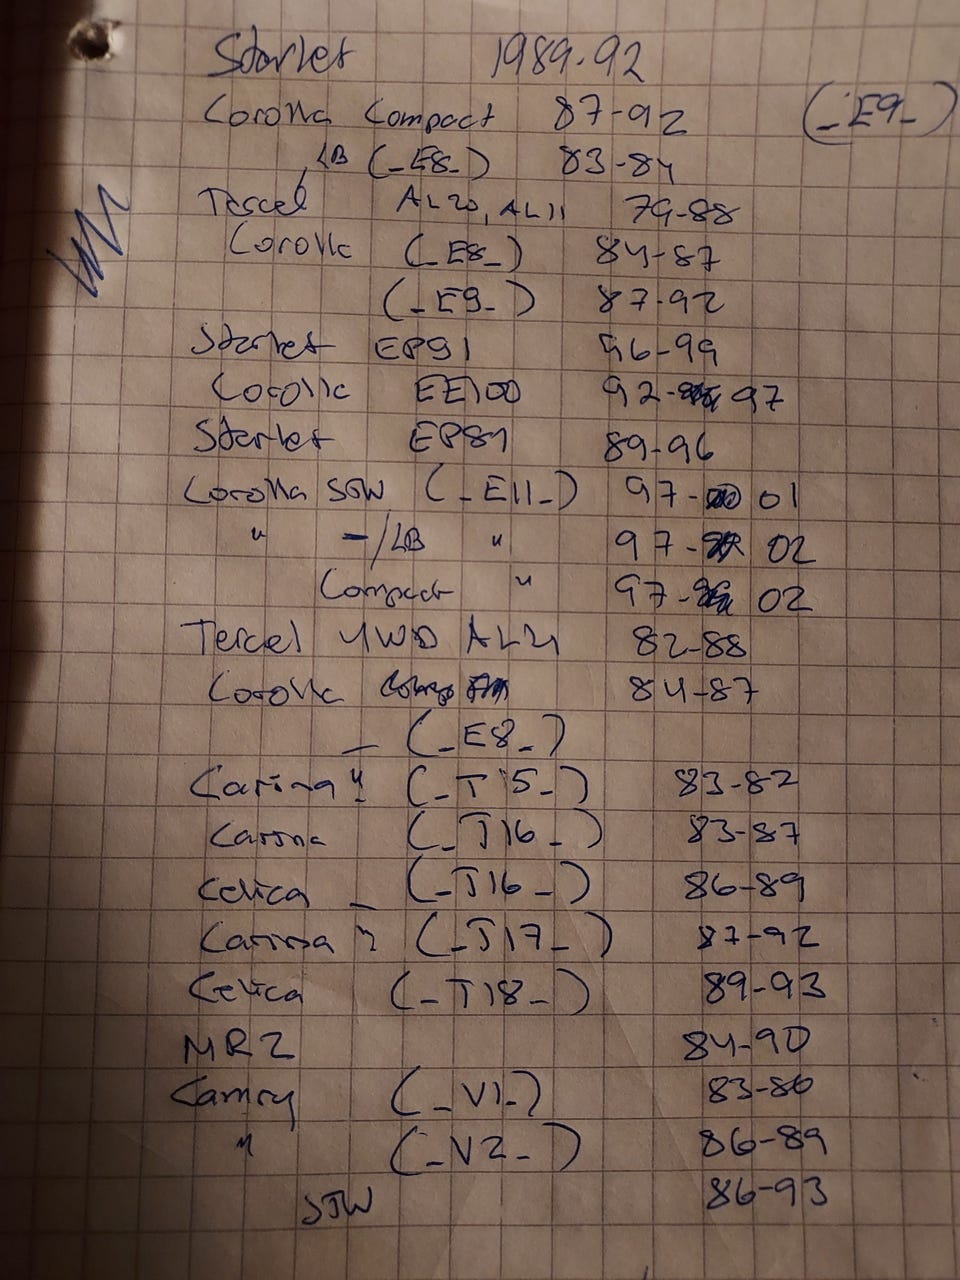 Starlet 1989-92
Corolla Compact 87-92 (_E9_)
LB (_E8_) 83-84
Tercel AL20, AL11 79-88
Corolla (_E8_) 84-87
(_E9_) 87-92
Starlet EP91 96-99
Corolla EE100 92- 97
Starlet EP81 89-96
Corolla STW (_E11_) 97- 01
" -/LB " 97- 02
Compact " 97- 02
Tercel 4WD AL21 82-88
Corolla 84-87
_ (_E8_)
Carina " (_T15_) 83-82
Carina (_T16_) 83-87
Celica _ (_T16_) 86-89
Carina " (_T17_) 87-92
Celica (_T18_) 89-93
MR2 84-90
Camry (_V1_) 83-86
" (_V2_) 86-89
STW 86-93